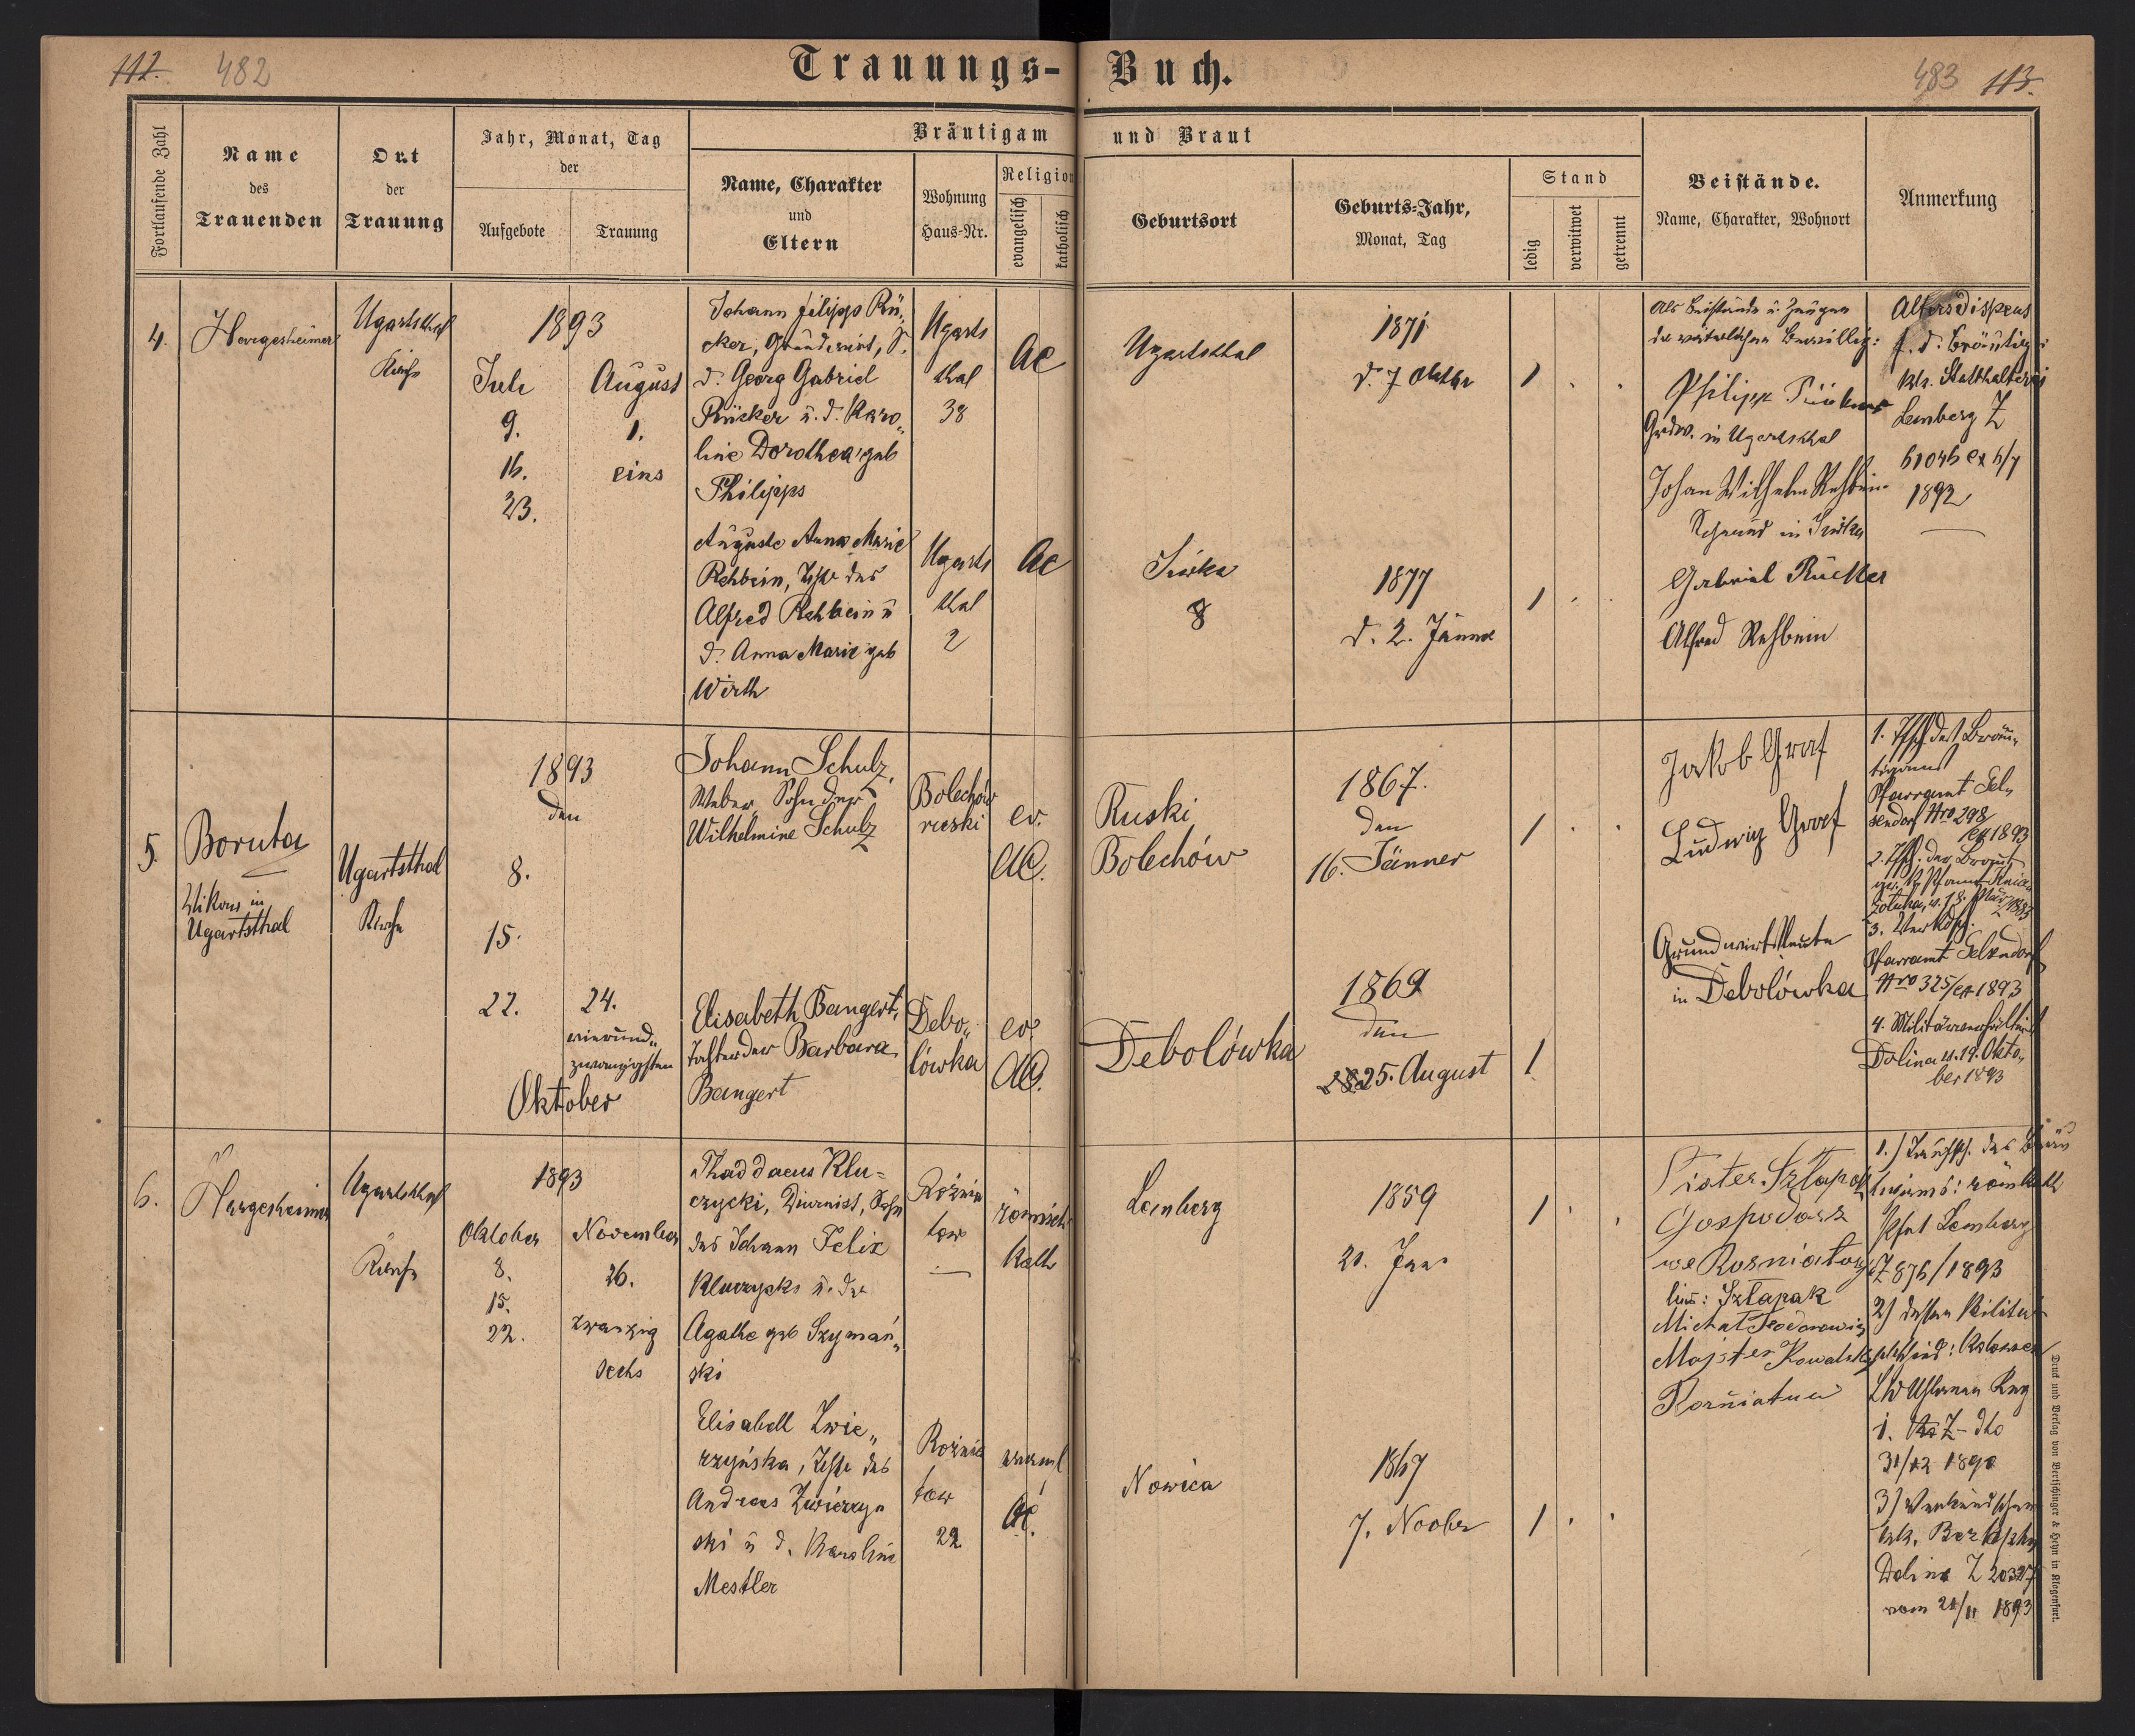 112. 482
Trauungs-Buch.
483 113.
Fortlaufende Zahl
Name
des
Trauenden
Ort
der
Trauung
Jahr, Monat, Tag
der
Aufgebote
Trauung
Bräutigam und Braut
Name, Charakter
und
Eltern
Wohnung
Haus-Nr.
Religion
evangelisch
katholisch
Geburtsort
Geburts-Jahr,
Monat, Tag
Stand
ledig
verwitwet
getrennt
Beistände.
Name, Charakter, Wohnort
Anmerkung
4.
Hargesheimer
Ugartsthal
Kirche
1893
Juli
9.
16.
23.
August
1.
eins
Johann Filipp Rü„
cker, Grundwirt, S.
d. Georg Gabriel
Rücker u. d. Karo„
line Dorothea geb
Philipps
Ugarts
thal
38
AC
Ugartsthal
1871
d. 7 Oktbr
1
Als Beistände u. Zeugen
der väterlichen Bewillig:
Philipp Rücker
Grdw. in Ugartsthal
Johan Wilhelm Rehbein
in Siwka
Gabriel Rücker
Alfred Rehbein
Altersdispens
f. d. Bräutig:
kk. Statthalterei
Lemberg Z
61046 ex 6/7
1892
Auguste Anna Marie
Rehbein, Tchtr des
Alfred Rehbein u
d. Anna Marie geb
Wirth
Ugarts
thal
2
AC
Siwka
8
1877
d. 2. Jänner
1
5.
Boruta
Vikar in
Ugartsthal
Ugartsthal
Kirche
1893
den
8.
15.
22.
24.
vierund„
zwanzigsten
Oktober
Johann Schulz,
Weber, Sohn der
Wilhelmine Schulz
Bolechów
ruski
ev.
AC.
Ruski
Bolechów
1867.
den
16. Jänner
1
Jakob Graf
Ludwig Graf
Grundwirtsleute
in Debolówka
1. Tfsch. des Bräu„
tigams
Pfarramt Gel„
sendorf Nro 298
ex 1893
2. Tfsch. der Braut
3. Verkdsch.
Pfarramt Gelsendorf
Nro 325/ex 1893
4. Militärverhältnis
Dolina v. 19. Okto„
ber 1893
Elisabeth Bangert,
Tochter der Barbara
Bangert
Debo„
lówka
ev.
AC.
Debolówka
1869
den
25. August
1
6.
Hargesheimer
Ugartsthal
Kirche
1893
Oktober
8.
15.
22.
November
26.
zwanzig
sechs
Thaddaeus Klu=
czycki, Diurnist, Sohn
des Johann Felix
Kluczycki u. der
Agathe geb Szymań„
ski
Rożnia
tow
—
römisch
kath
Lemberg
1859
1
Pioter Sztapak
Gospodarz
we Rosniatow
Sztapak
Michał Teodorowicz
Majster Kowalski
Rożniatow
1.) Taufsch. des Bräu
tigams: röm kath
Pfat Lemberg
Z 876/1893
2)
31/12 1890
3) Verkündschein
kk. Bezkhptm
Dolina Z 20317
vom 21/11 1893
Elisabell Zwie„
rzyńska, Tchtr des
Andreas Zwierzyn
ski u d. Karoline
Mestler
Rożnia
tow
22
evangl
AC.
Nowica
1867
7. Novbr
1
Druck und Verlag von Bertschinger & Heyn in Klagenfurt.